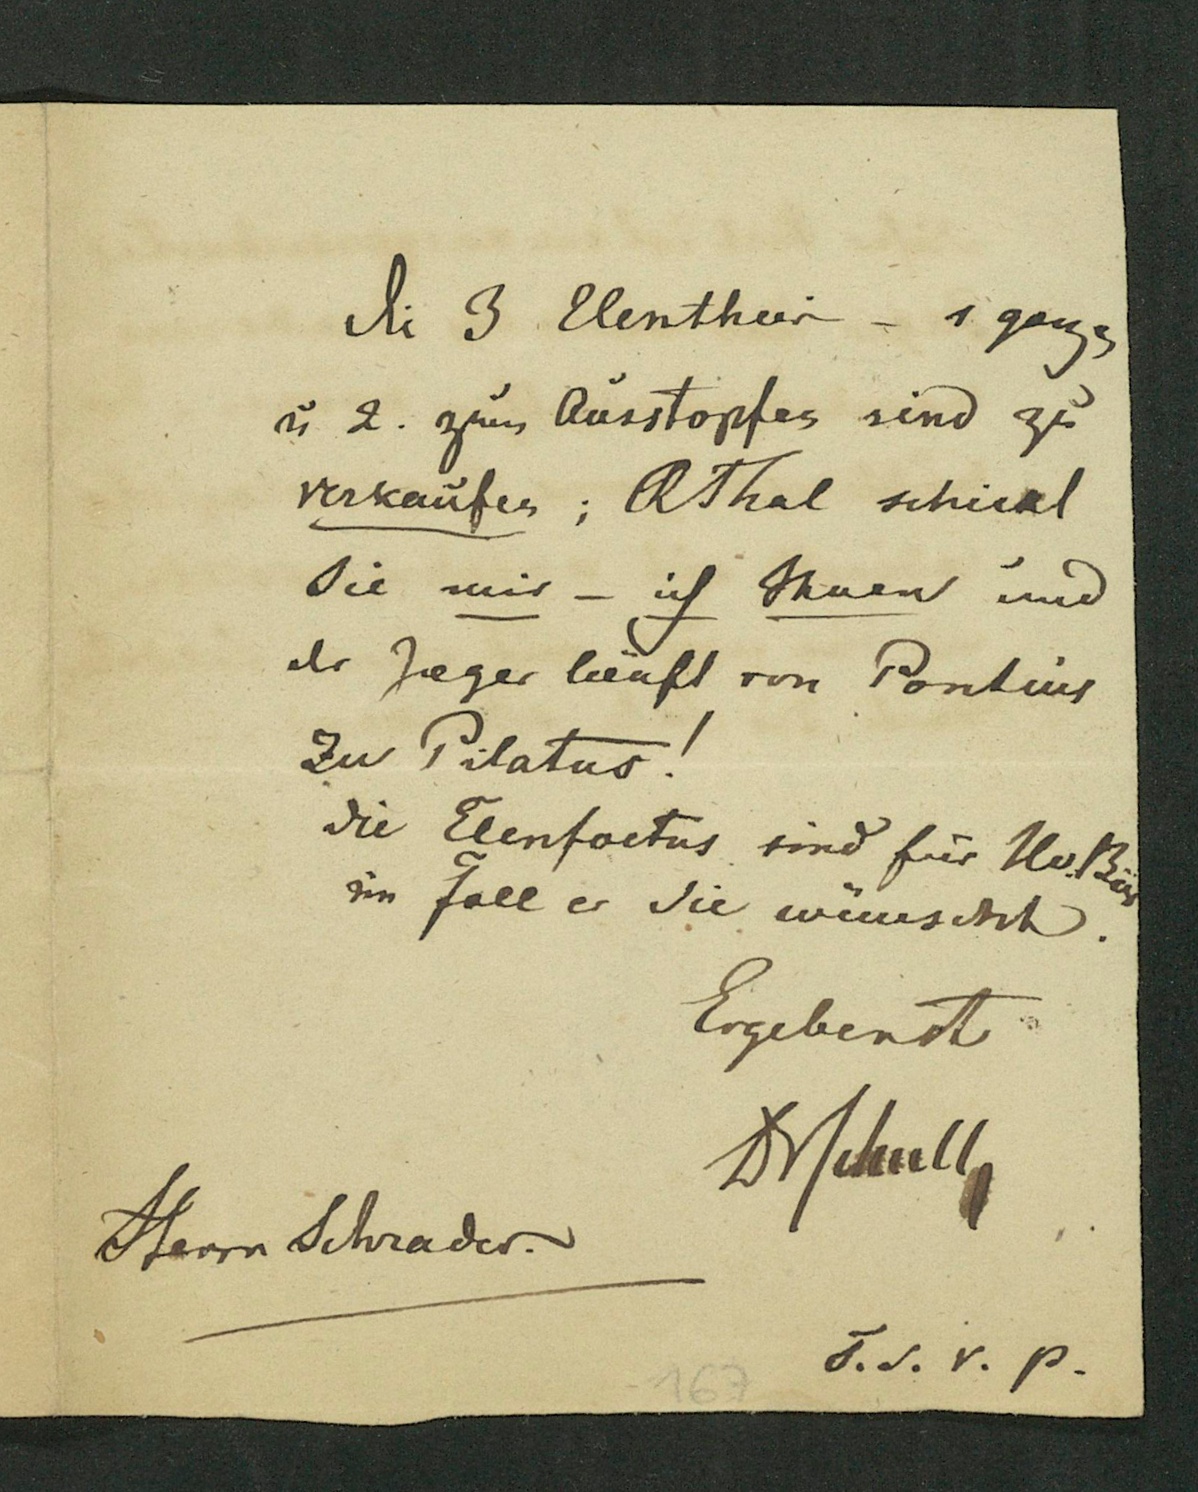 die 3 Elenthier – 1 ganzes
u 2. zum Ausstopfen sind zu
verkaufen; RThal schickt
Sie mir – ich Ihnen und
der Jaeger läuft von Pontius
zu Pilatus!
die Elenfoetus sind für Hr.
im Fall er Sie wünscht.
Ergebenst
Dr Schull
Herrn Schrader.
T. s. v. p.
167